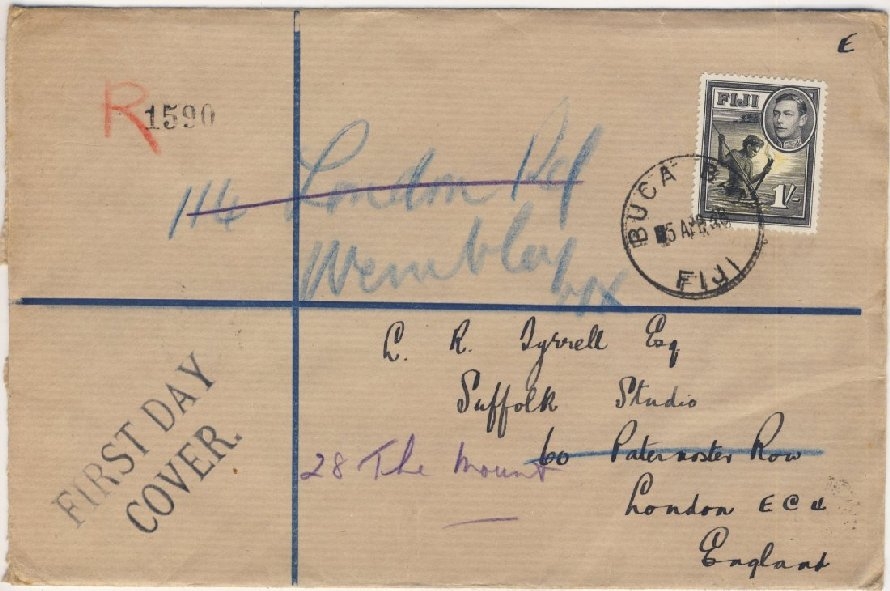 E
R1590
FIJI
1/-
BUCA B
5 APR 38
FIJI
114 London Rd
Wembley
L. R. Tyrrell Esq
Suffolk Studio
60 Paternoster Row
28 The Mount
London E C 4
England
FIRST DAY
COVER.